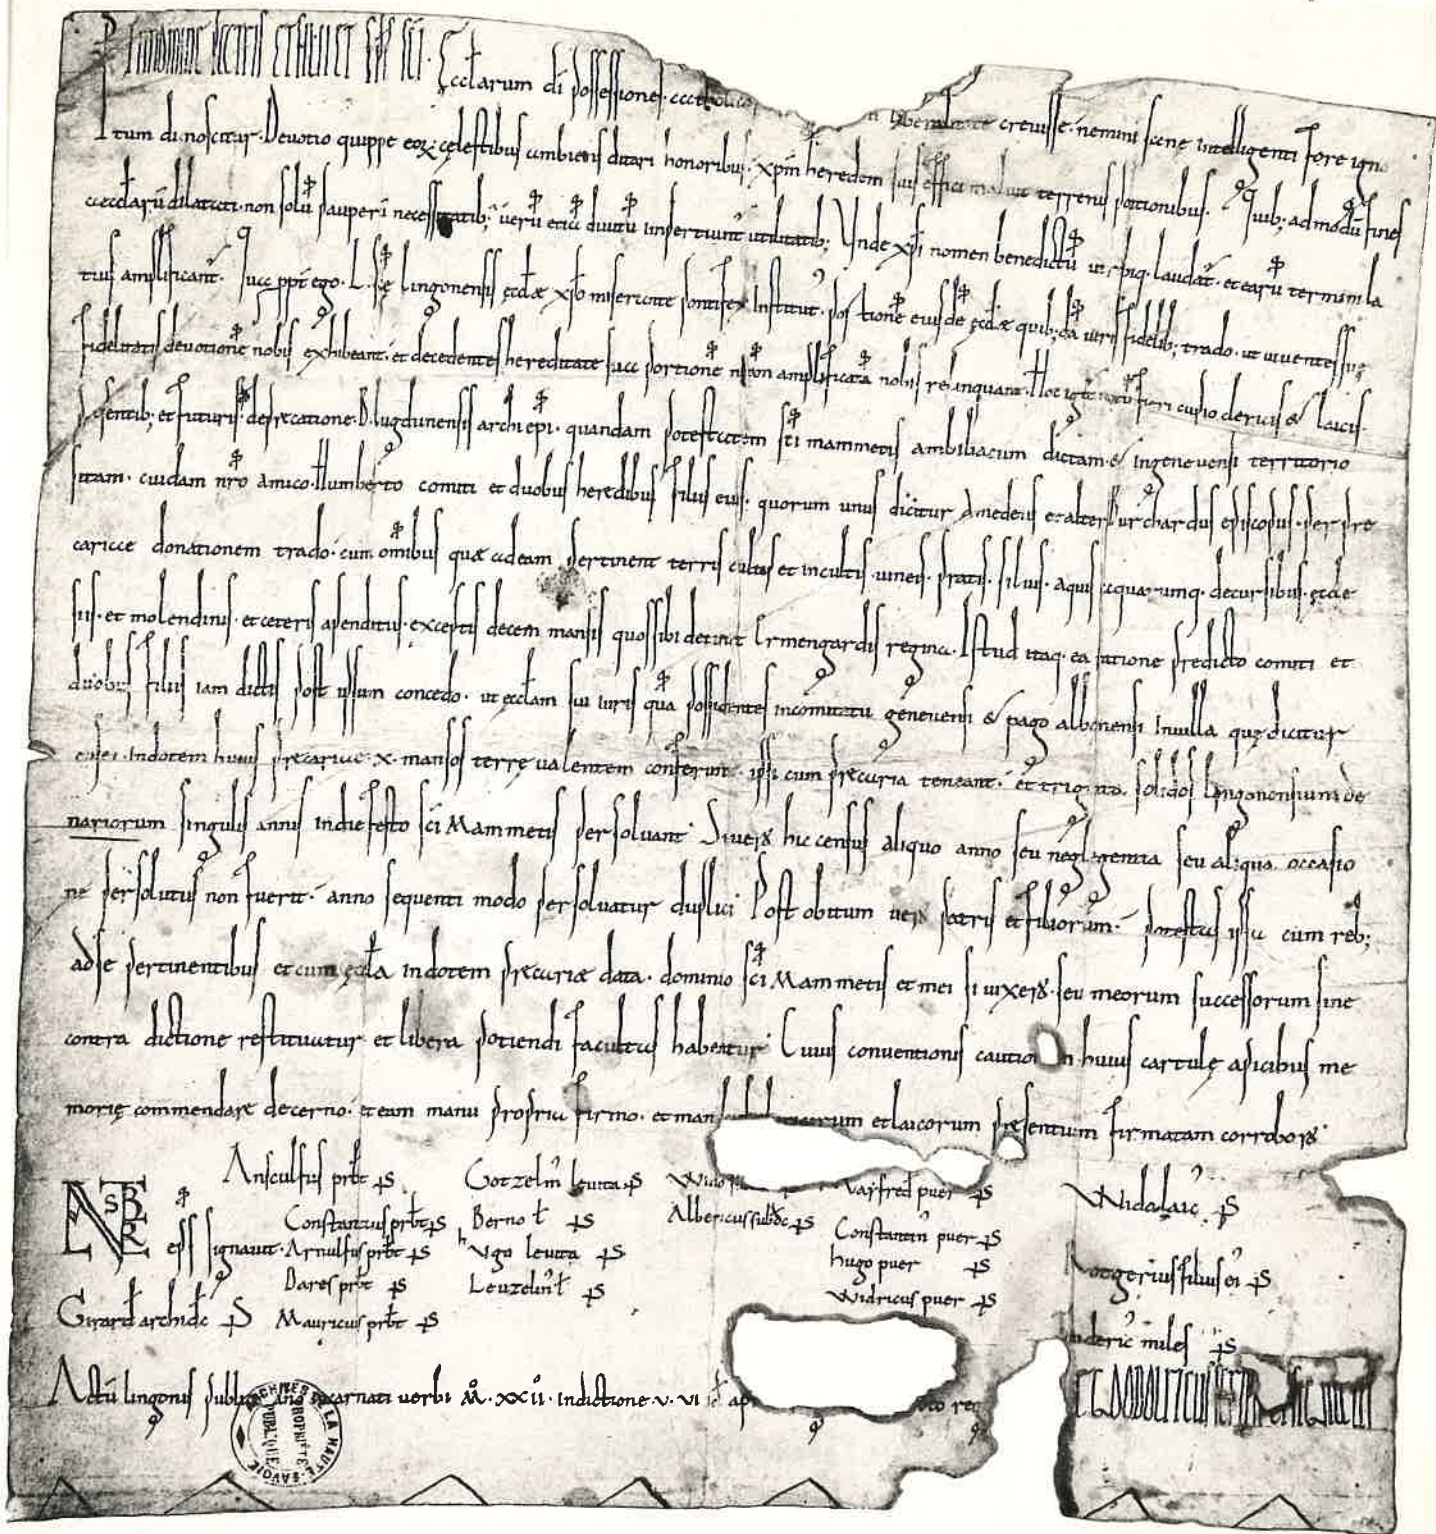 IN NOMINE PATRIS ET FILII ET SPS SCI. Ęccłarum di possessiones liberalitate crevisse. nemini sane intelligenti fore igno
tum dinoscitur. Devotio quippe eoꝝ cęlestibus ambiens ditari honoribus. xpm heredem suis effici maluit terrenis potionibus. Quib; admodu fines
aeccłaru dilatati. non solu pauperu necessitatib; veru etia divitu inserviunt utilitatib; Unde xpi nomen benedictu ubiq. laudat. et earu termini la
tius amplificant. Qua ppt ego. L. sce lingonensis ęcclæ xpo miserante pontifex institut. portione eiusde ęcclæ quibda viris fidelib; trado. ut viventes suę
fidelitatis devotione nobis exhibeant. et decedentes hereditate sua portione nram amplificata nobis relinquant. Hoc igit notu fieri cupio clericis & laicis.
psentib; et futuris. deprecatione. B. lugdunensis archi epi. quandam potestatem sci mammetis ambiliacum dictam. & in genevensi territorio
sitam. cuidam nro amico. Humberto comiti et duobus heredibus filiis eius. quorum unus dicitur Amedeus et alter Burchardus episcopus. per pre
cariæ donationem trado. cum omibus quæ adeam pertinent terris cultis et incultis. vineis. pratis. silvis. aquis aquarumq. decursibus. ęccle
siis. et molendinis. et ceteris apenditiis. exceptis decem mansis quos sibi detinet Ermengardis regina. Istud itaq. ea ratione predicto comiti et
duobus filiis iam dictis post ipsum concedo. ut ęccłam sui iuris qua possidentes in comitatu genevensi & pago albanensi in villa quę dicitur
in dotem huius precariæ. x. mansos terrę valentem conferunt. ipsi cum precaria teneant. et triginta solidos lingonensium de
nariorum singulis annis in die festo sci Mammetis persolvant. Si vero hic census aliquo anno seu neglegentia seu aliqua occasio
ne persolutus non fuerit. anno sequenti modo persolvatur duplici. Post obitum vero patris et filiorum. potestas ipsa cum reb;
ad se pertinentibus et cum ęccła in dotem precariæ data. dominio sci Mammetis et mei si vixero. seu meorum successorum sine
contra dictione restituatur et libera potiendi facultas habeatur. Cuius conventionis cautio n huius cartulę apicibus me
morię commendare decerno. et eam manu propria firmo. et man orum et laicorum presentium firmatam corroboro.
Ansculfus prbt S Gotzelm levita S Wido Vayfred puer S Widolaic S
Constantius prbt S Berno ł S Albericus subdc S Constantin puer S
eps signavit. Arnulfus prbt S hugo levita S hugo puer S Rotgerius filius ei S
Dares prbt S Leuzelin ł S Widricus puer S
Girard archidc S Mauricus prbt S miles S
Actu lingonis publice anno incarnati verbi M. XXII. indictione. v. vi id ap to reg
ARCHIVES DE LA HAUTE-SAVOIE PROPRIÉTÉ PUBLIQUE